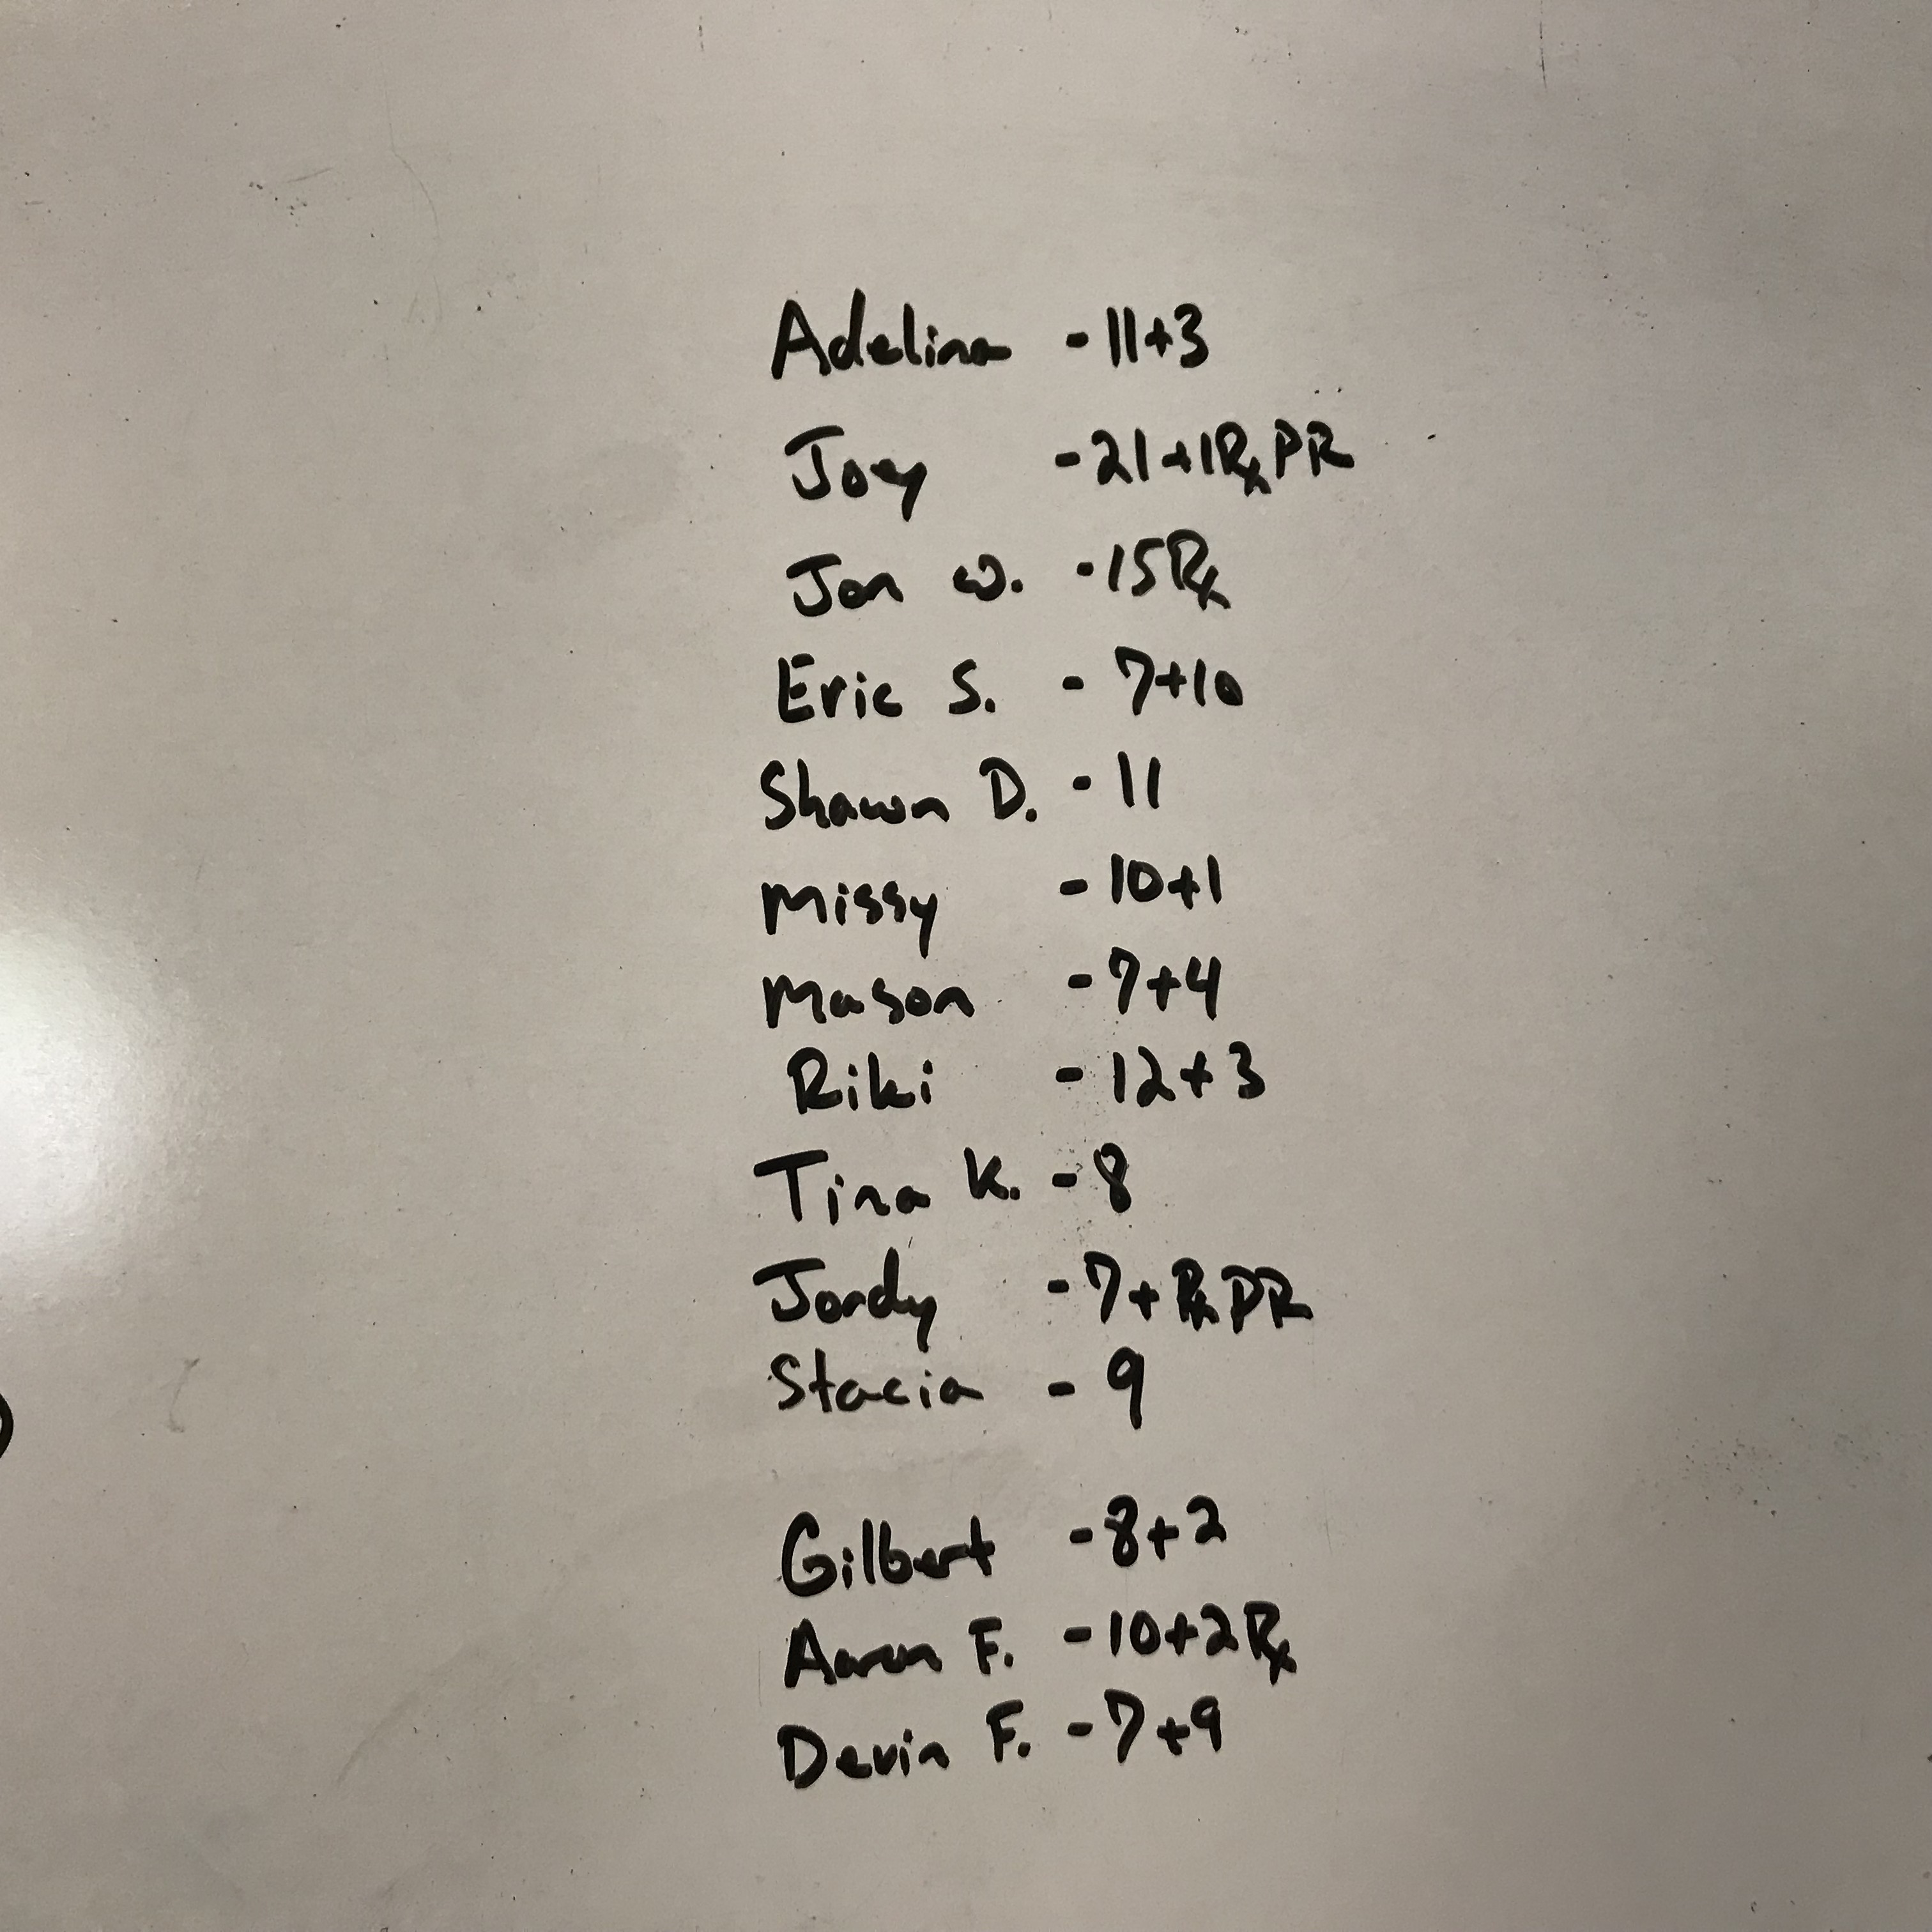 Adelina - 11+3
Joey - 21+1Rx PR
Jon W. - 15Rx
Eric S. - 7+10
Shawn D. - 11
Missy - 10+1
Mason - 7+4
Riki - 12+3
Tina K. - 8
Jordy - 7+Rx PR
Stacia - 9
Gilbert - 8+2
Aaron F. - 10+2Rx
Devin F. - 7+9